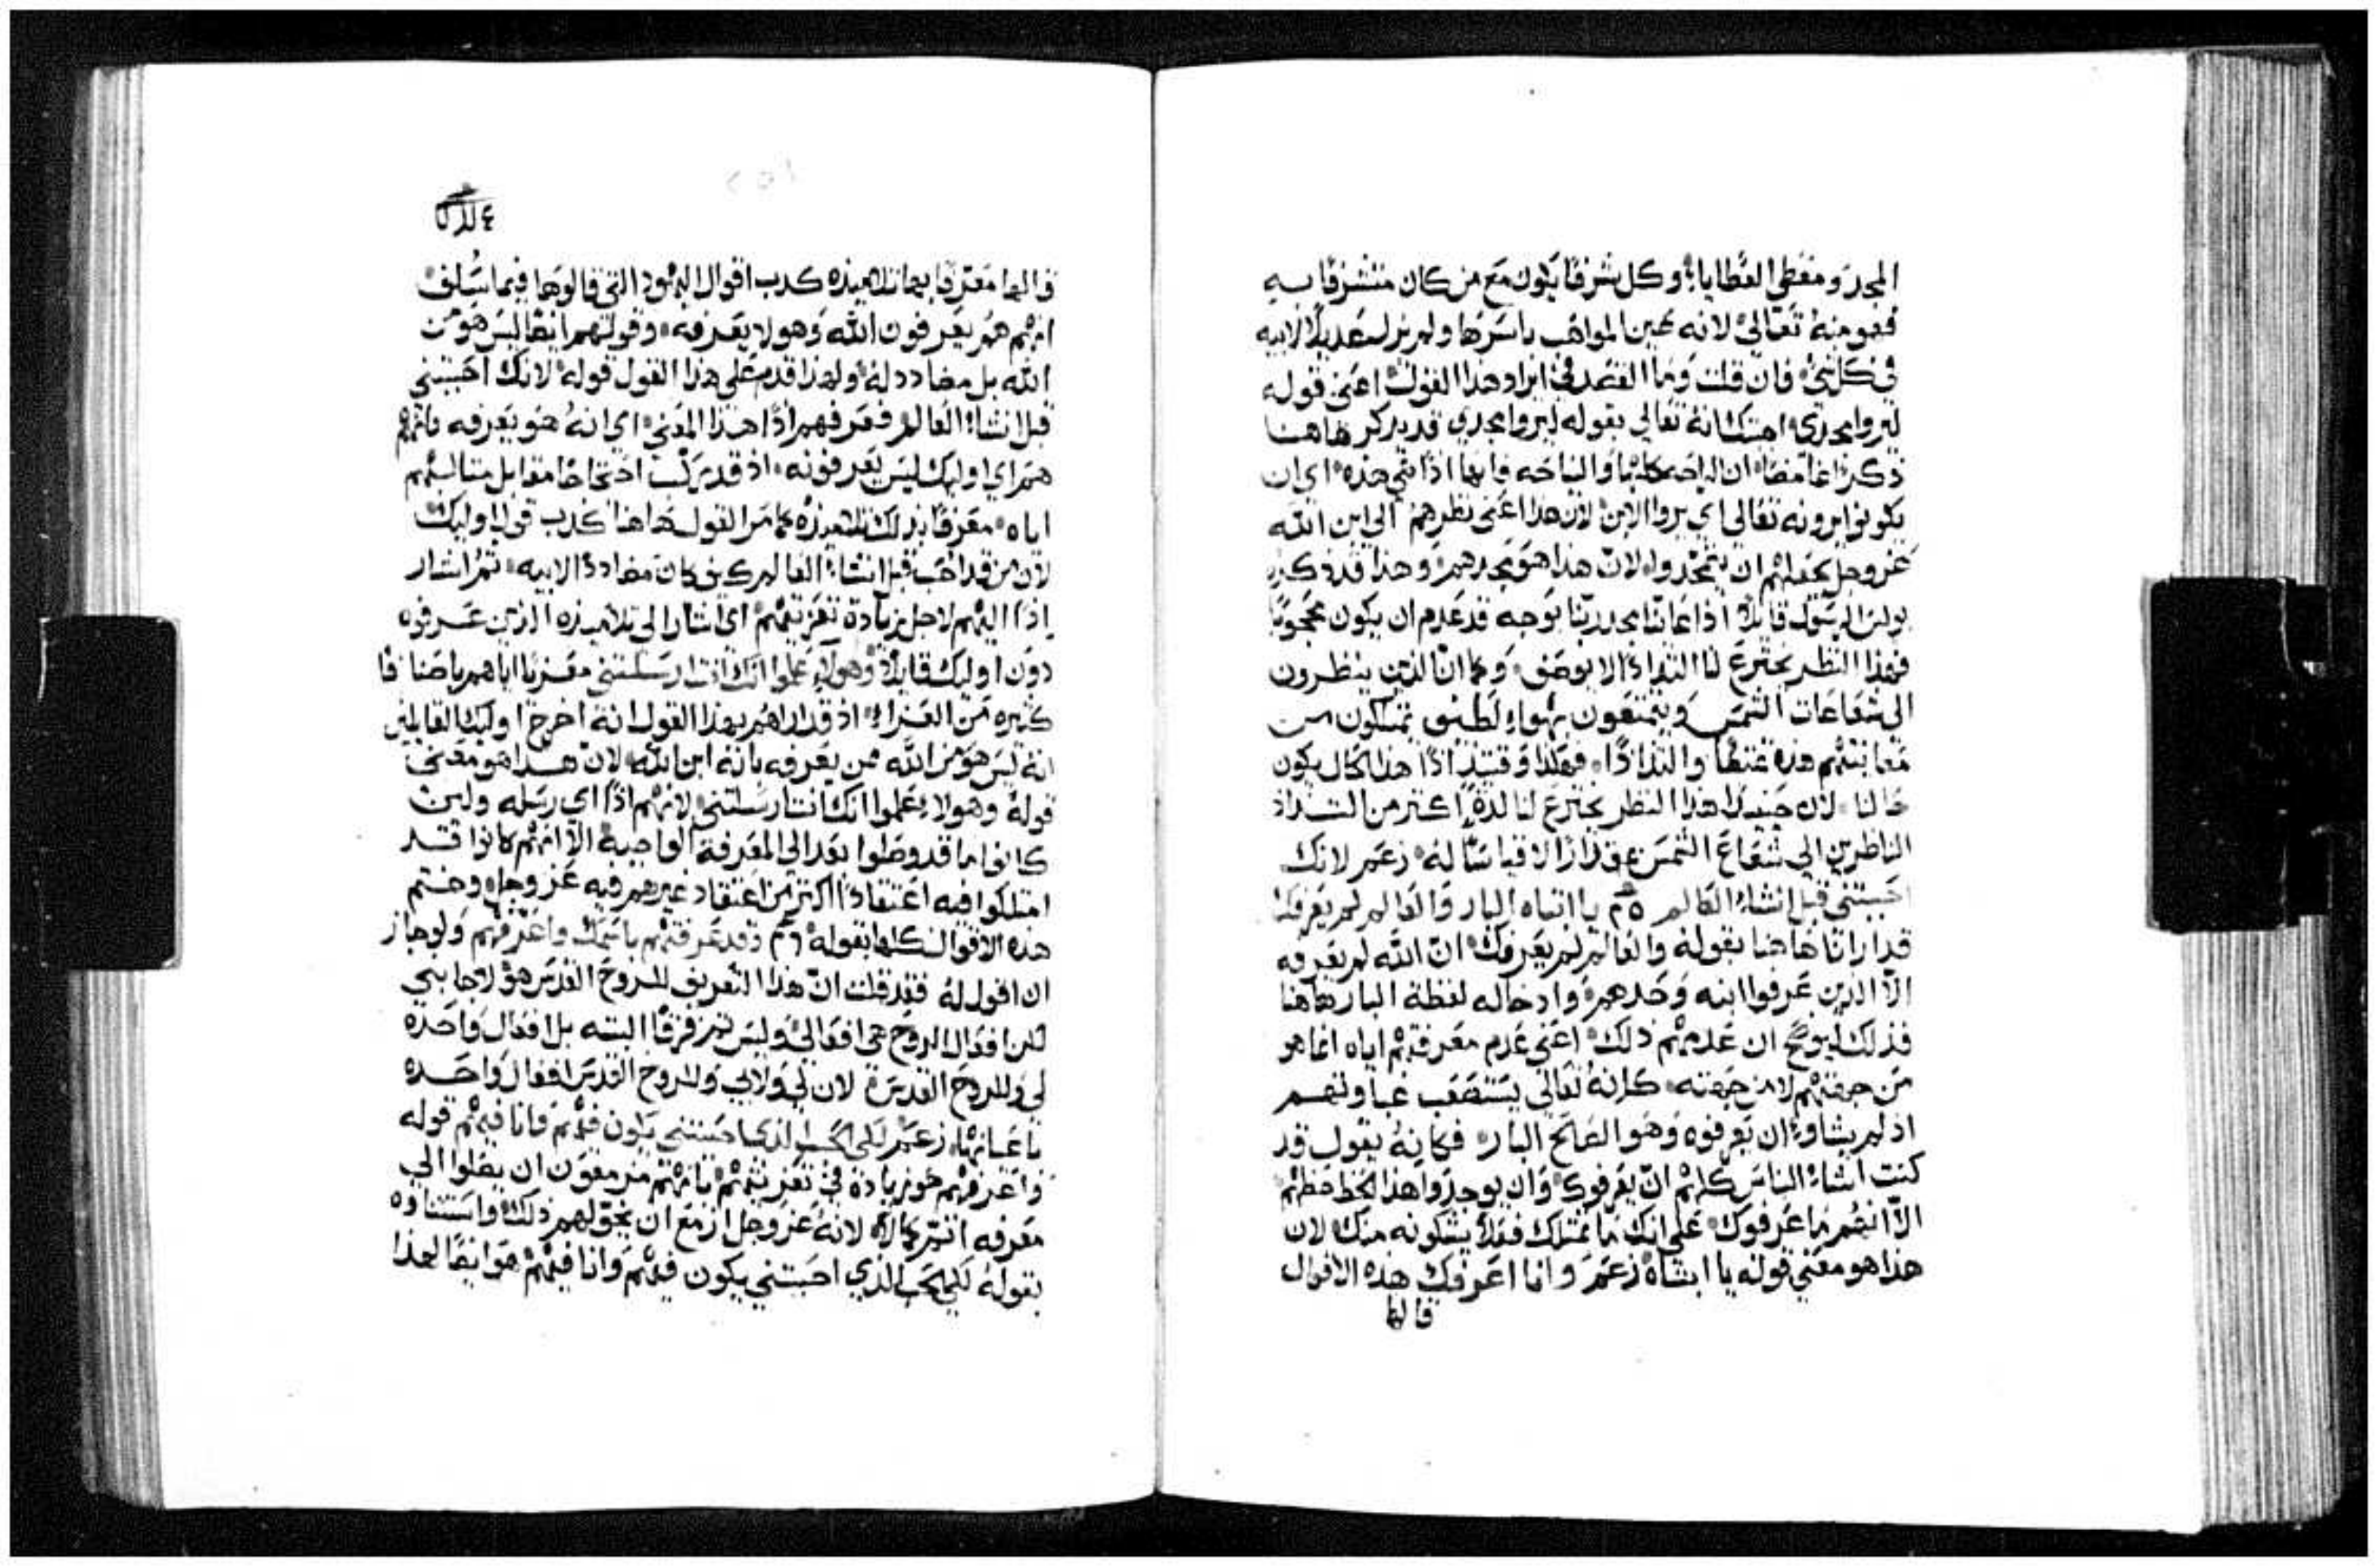 المجد ومعطي العطايا، وكل شرفا يكون مع من كان متشرفا به
فهو منه تعالى لانه عين المواهب باسرها ولم يزل عديلا لابيه
في كل شي، فان قلت وما القصد في ايراد هذا القول اعني قوله
ليروا مجدي، اجبتك انه تعالى بقوله ليروا مجدي قد يذكر هاهنا
ذكرا غامضا ان الراحه كلها والنياحه فانها اذا هي هذه، اي ان
يكونوا يرونه تعالى اي يروا الابن لان هذا اعني نظرهم الى ابن الله
عز وجل يجعلهم ان يتمجدوا، لان هذا هو مجدهم، وهذا قد ذكره
بولس الرسول قايلا اذا عاينا مجد ربنا بوجه قد عدم ان يكون محجوبا
فهذا النظر يخترع لنا التذاذا لا يوصف، وكما ان الذين ينظرون
الى شعاعات الشمس ويتمتعون بهواء لطيف يمتلكون من
معاينتهم هذه غبطا والتذاذا، فهكذا وقتيذ اذا هذا الحال يكون
حالنا لان حينيذ هذا النظر يخترع لنا لذة اكثر من التذاذ
الناظرين الى شعاع الشمس مقدارا لا قياسا له، زعم لانك
احببتني قبل انشاء العالم ٢٥ يا ابتاه البار والعالم لم يعرفك
قد ارانا هاهنا بقوله والعالم لم يعرفك، ان الله لم يعرفه
الا الذين عرفوا ابنه وحدهم، وادخاله لفظة البار هاهنا
فذلك ليوضح ان عدمهم ذلك، اعني عدم معرفتهم اياه انما هو
من جهتهم لا من جهته، كانه تعالى يستصعب غباوتهم
اذ لم يشاوا ان يعرفوه وهو الصالح البار، فكانه يقول قد
كنت اشاء الناس كلهم ان يعرفوك، وان يوجدوا هذا الحظ حظهم
الا انهم ما عرفوك، على انك ما تمتلك فعلا يشكونه منك، لان
هذا هو معنى قوله يا ابتاه زعم وانا اعرفك هذه الاقوال
قالها
قالها معترفا بها تلاميذه كذب اقوال اليهود التي قالوها فيما سلف
انهم هم يعرفون الله وهو لا يعرفه، وقولهم ايضا ليس هو من
الله بل مضادد له، ولهذا قدم على هذا القول قوله لانك احببتني
قبل انشاء العالم فعرفهم اذا هذا المعنى، اي انه هو يعرفه وانهم
هم اي اوليك ليس يعرفونه، اذ قد يركب احتجاجا مقابل مقالتهم
اياه معرفا بذلك تلاميذه كما مر القول هاهنا كذب قول اوليك
لان من قد احب قبل انشاء العالم كيف كان مضاددا لابيه، ثم اشار
اذا اليهم لاجل زيادة تعزيتهم اي اشار الى تلاميذه الذين عرفوه
دون اوليك قايلا وهولاء علموا انك انت ارسلتني معزيا اياهم باصنافا
كثيره من العزاء، اذ قد اراهم بهذا القول انه اخرج اوليك القايلين
انه ليس هو من الله ممن يعرفه بانه ابن الله، لان هذا هو معنى
قوله وهولا يعلموا انك انت ارسلتني، لانهم اذا اي رسله ولين
كانوا ما قد وصلوا بعد الى المعرفة الواجبة الا انهم كانوا قد
امتلكوا فيه اعتقادا اكثر من اعتقاد غيرهم فيه عز وجل، وختم
هذه الاقوال كلها بقوله ٢٦ وقد عرفتهم باسمك واعرفهم ولو جاز
ان اقول له فقد قلت ان هذا التعريف للروح القدس هو لاجابني
لكن افعال الروح هي افعالي، وليس ثم فرقا البته بل افعال واحده
لي وللروح القدس، لان لي ولابي وللروح القدس افعال واحده
باعيانها، زعم لكي الحب الذي احببتني يكون فيهم وانا فيهم قوله
واعرفهم هو زيادة في تعزيتهم بانهم مزمعون ان يصلوا الى
معرفه اتم كمالا، لانه عز وجل ازمع ان يخولهم ذلك، واستثناوه
بقوله لكي الحب الذي احببتني يكون فيهم وانا فيهم هو ايضا لهذا